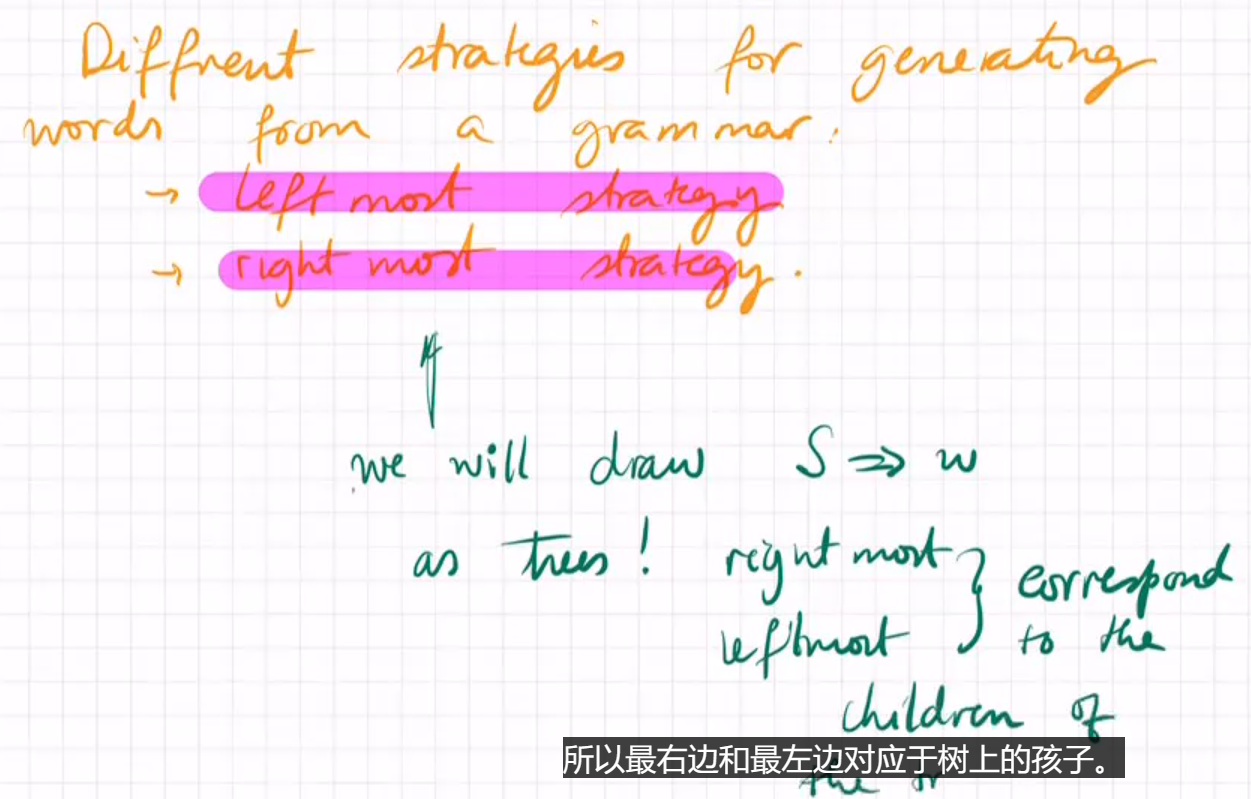 Diffrent strategies for generating
words from a grammar:
→ left most strategy
→ right most strategy.
we will draw S ⇒ w
as trees! right most } correspond
leftmost to the
children of
所以最右边和最左边对应于树上的孩子。
the